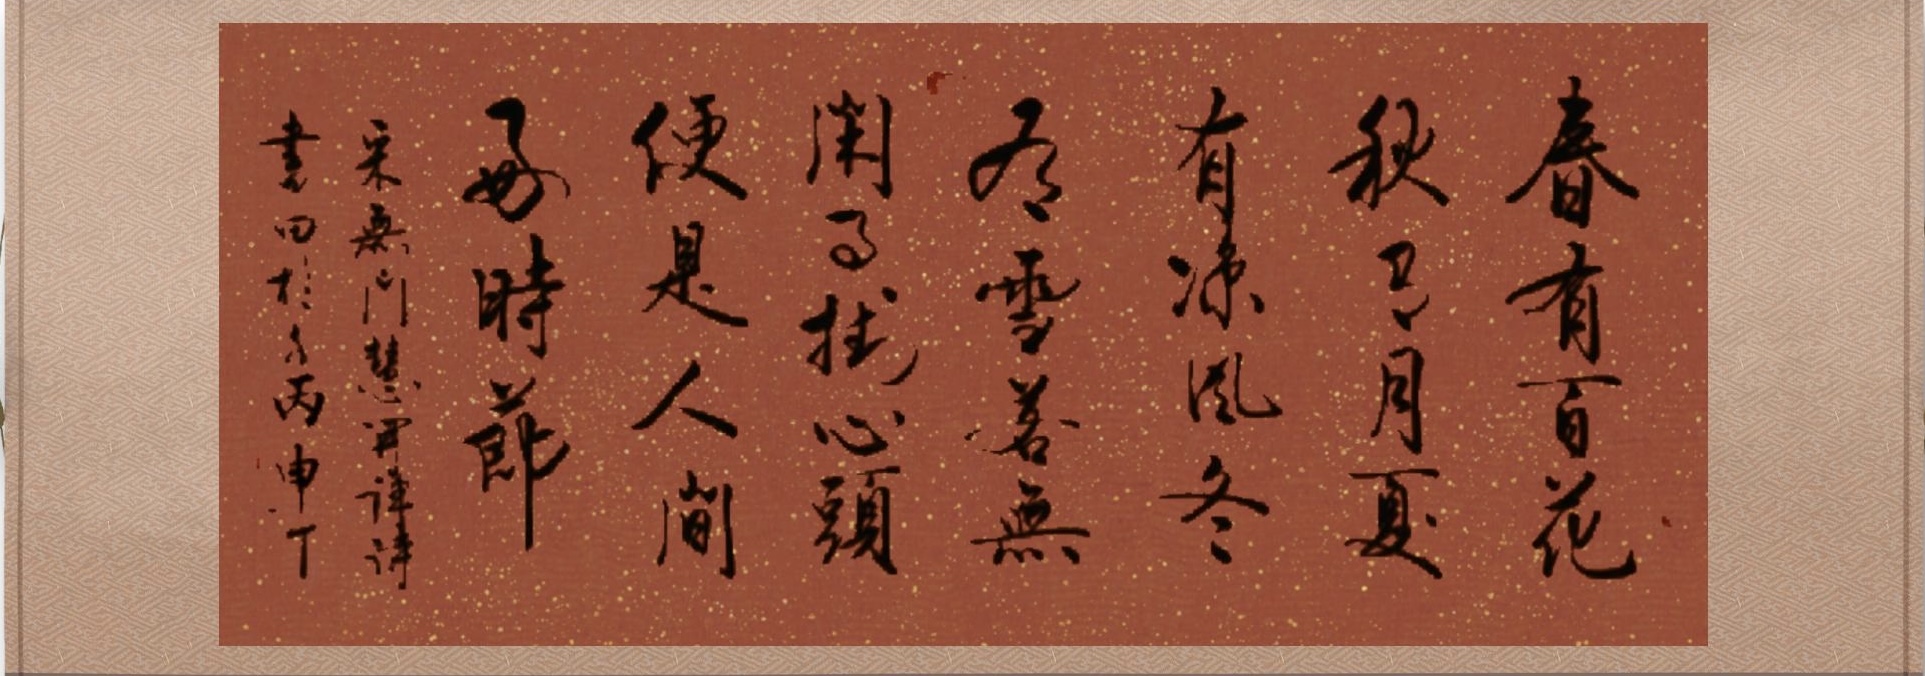 春有百花
秋有月夏
有凉風冬
有雪若無
閑事挂心頭
便是人間
好時節
宋無門慧開禪詩
書 丙申